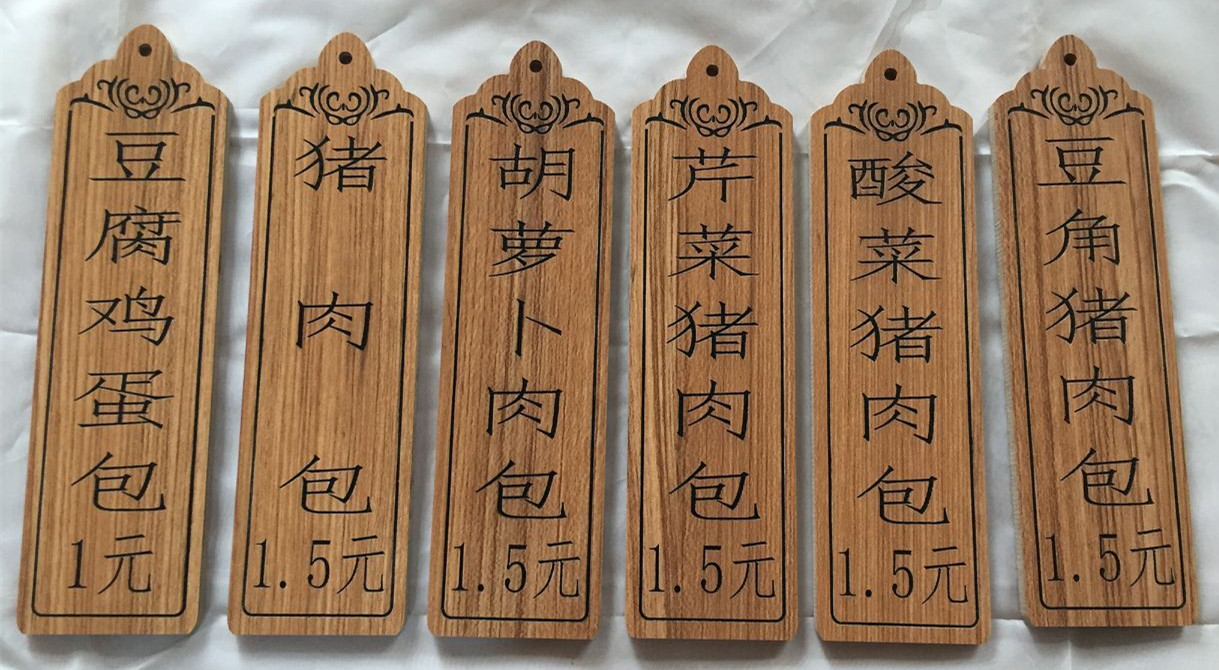 豆腐鸡蛋包
1元
猪肉包
1.5元
胡萝卜肉包
1.5元
芹菜猪肉包
1.5元
酸菜猪肉包
1.5元
豆角猪肉包
1.5元